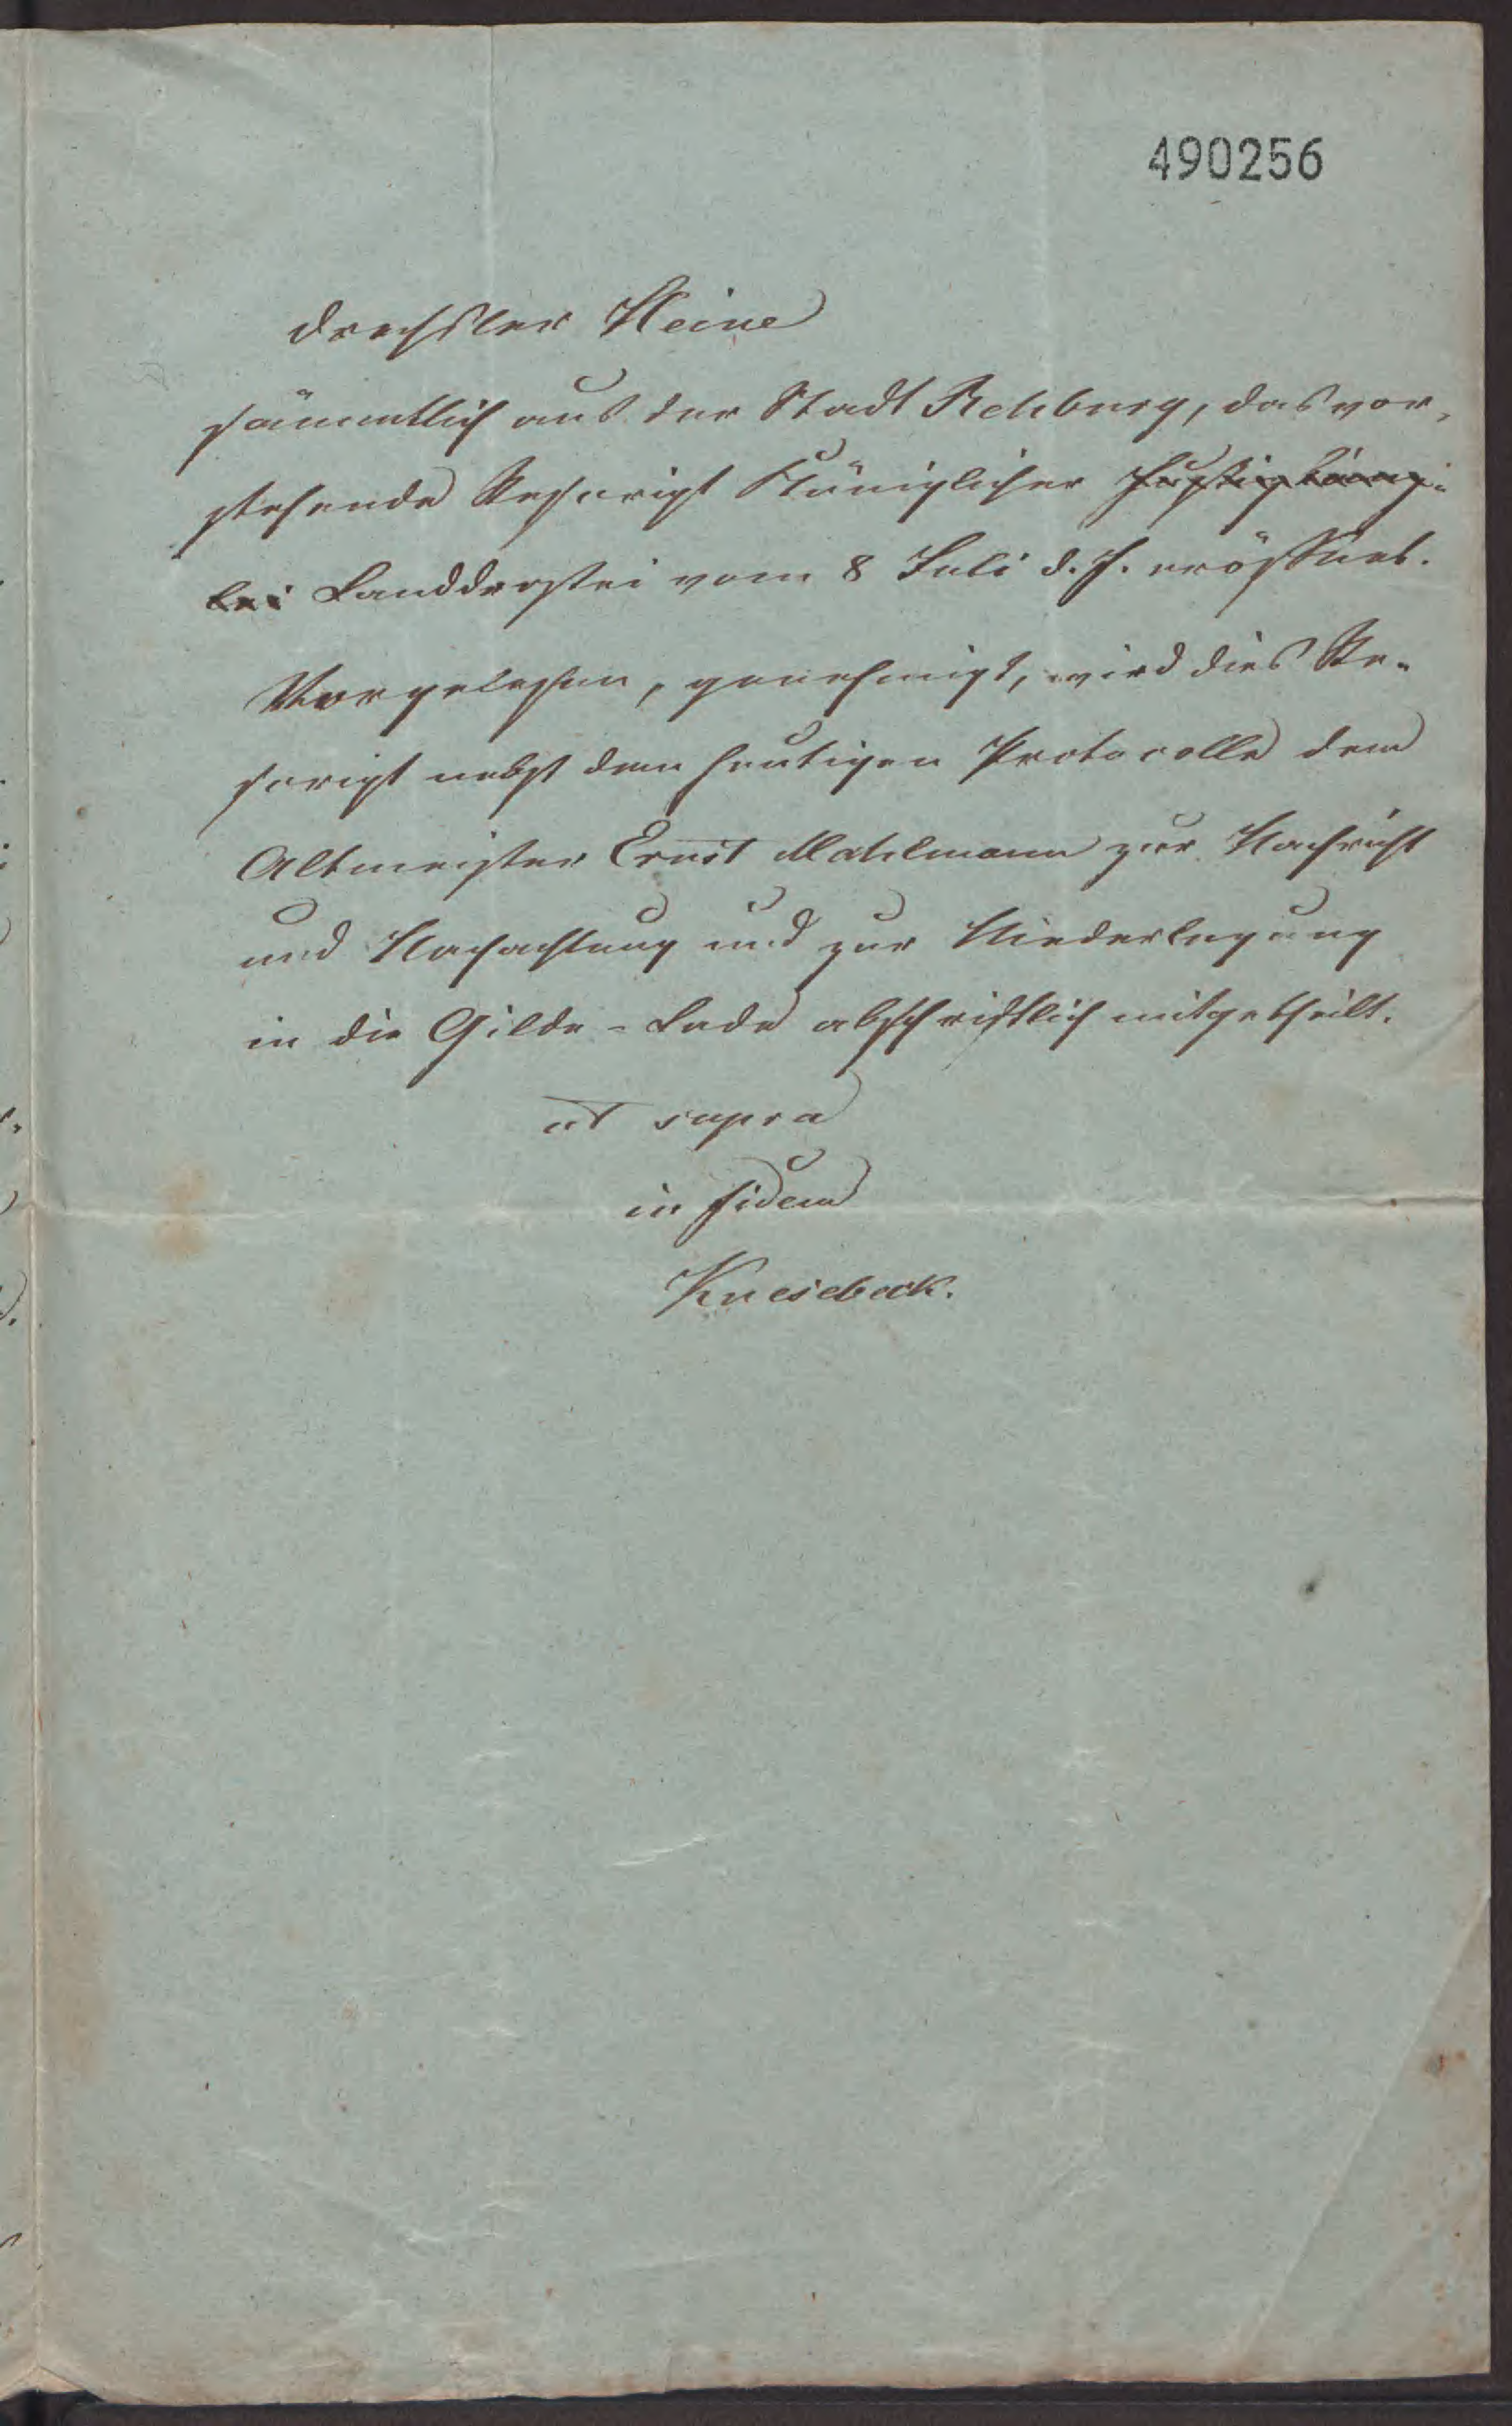 490256
Drechsler Heine
sämmtlich aus der Stadt Rehburg, das vor-
stehende Rescript Königlicher Justizkanz-
lei Landdrostei vom 8 Juli d. J. eröffnet.
Vorgelesen, genehmigt, wird dies Re-
script nebst dem heutigen Protocolle dem
Altmeister Ernst Mahlmann zur Nachricht
und Nachachtung und zur Niederlegung
in die Gilde-Lade abschriftlich mitgetheilt.
ut supra
in fidem
Knesebeck.